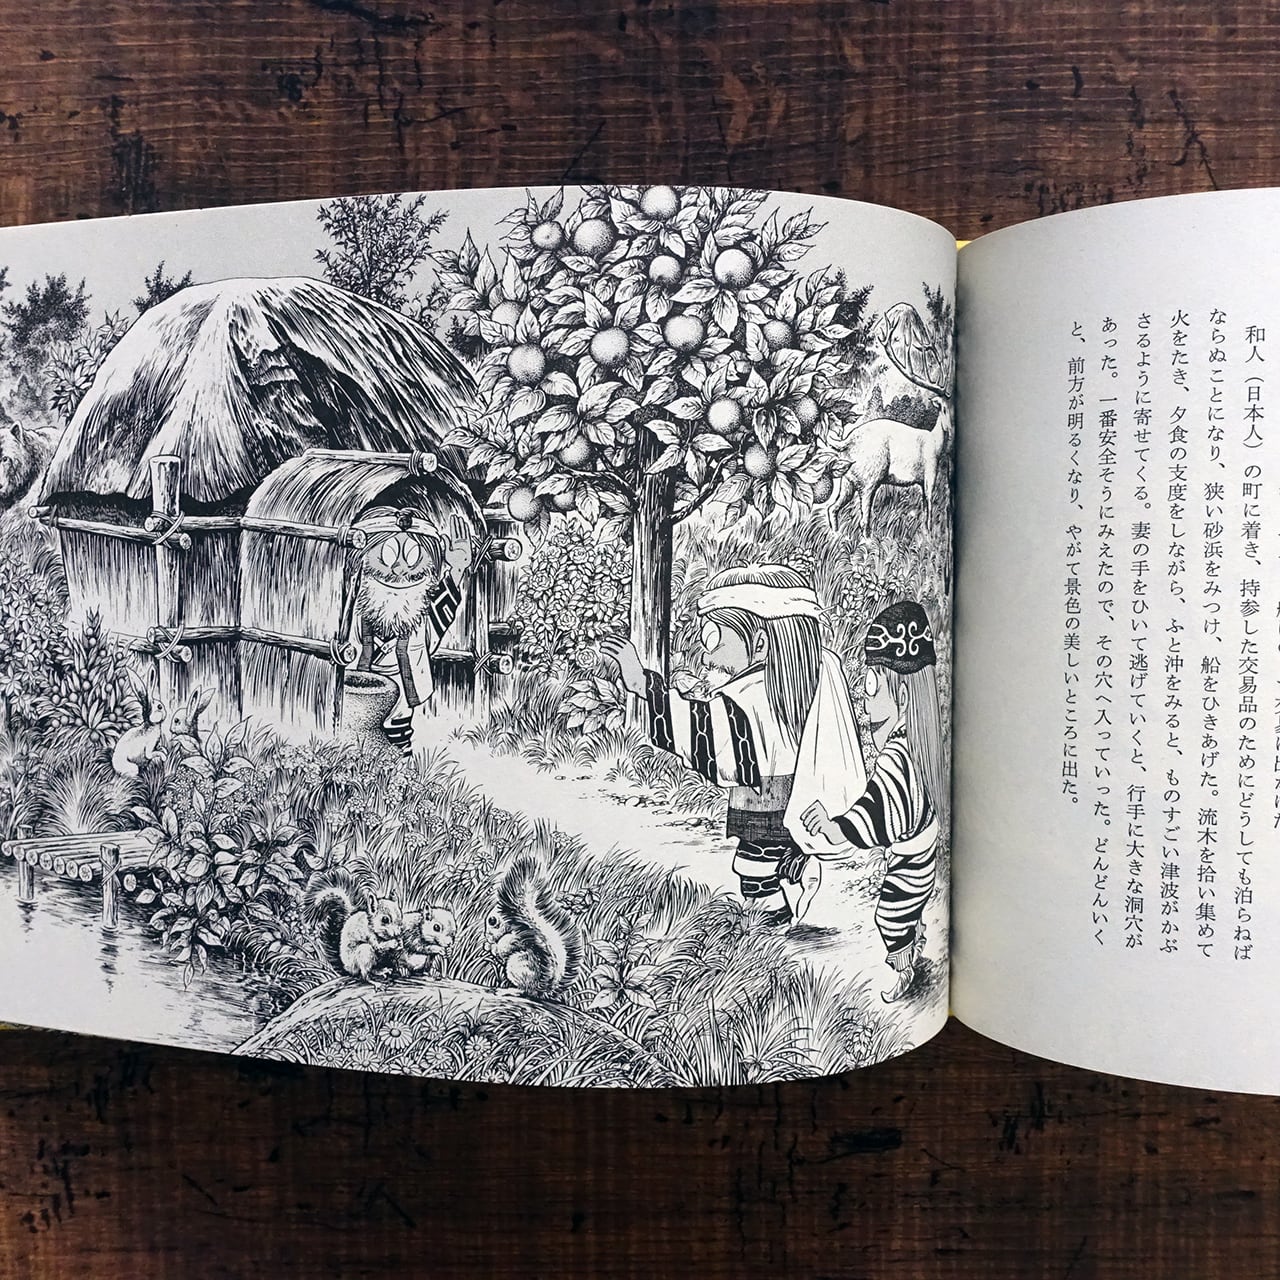 和人（日本人）の町に着き、持参した交易品のためにどうしても泊らねば
ならぬことになり、狭い砂浜をみつけ、船をひきあげた。流木を拾い集めて
火をたき、夕食の支度をしながら、ふと沖をみると、ものすごい津波がかぶ
さるように寄せてくる。妻の手をひいて逃げていくと、行手に大きな洞穴が
あった。一番安全そうにみえたので、その穴へ入っていった。どんどんいく
と、前方が明るくなり、やがて景色の美しいところに出た。